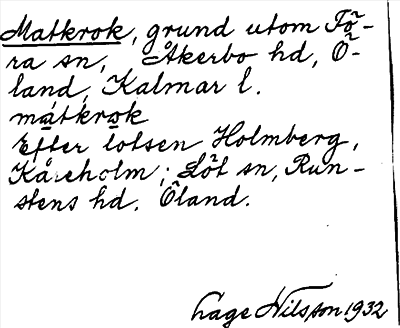 Matkrok, grund utom Fö-
ra sn, Åkerbo hd, Ö-
land, Kalmar l.
matkrok
Efter lotsen Holmberg,
Kåreholm; Löt sn, Run-
stens hd. Öland.
Lage Nilsson 1932